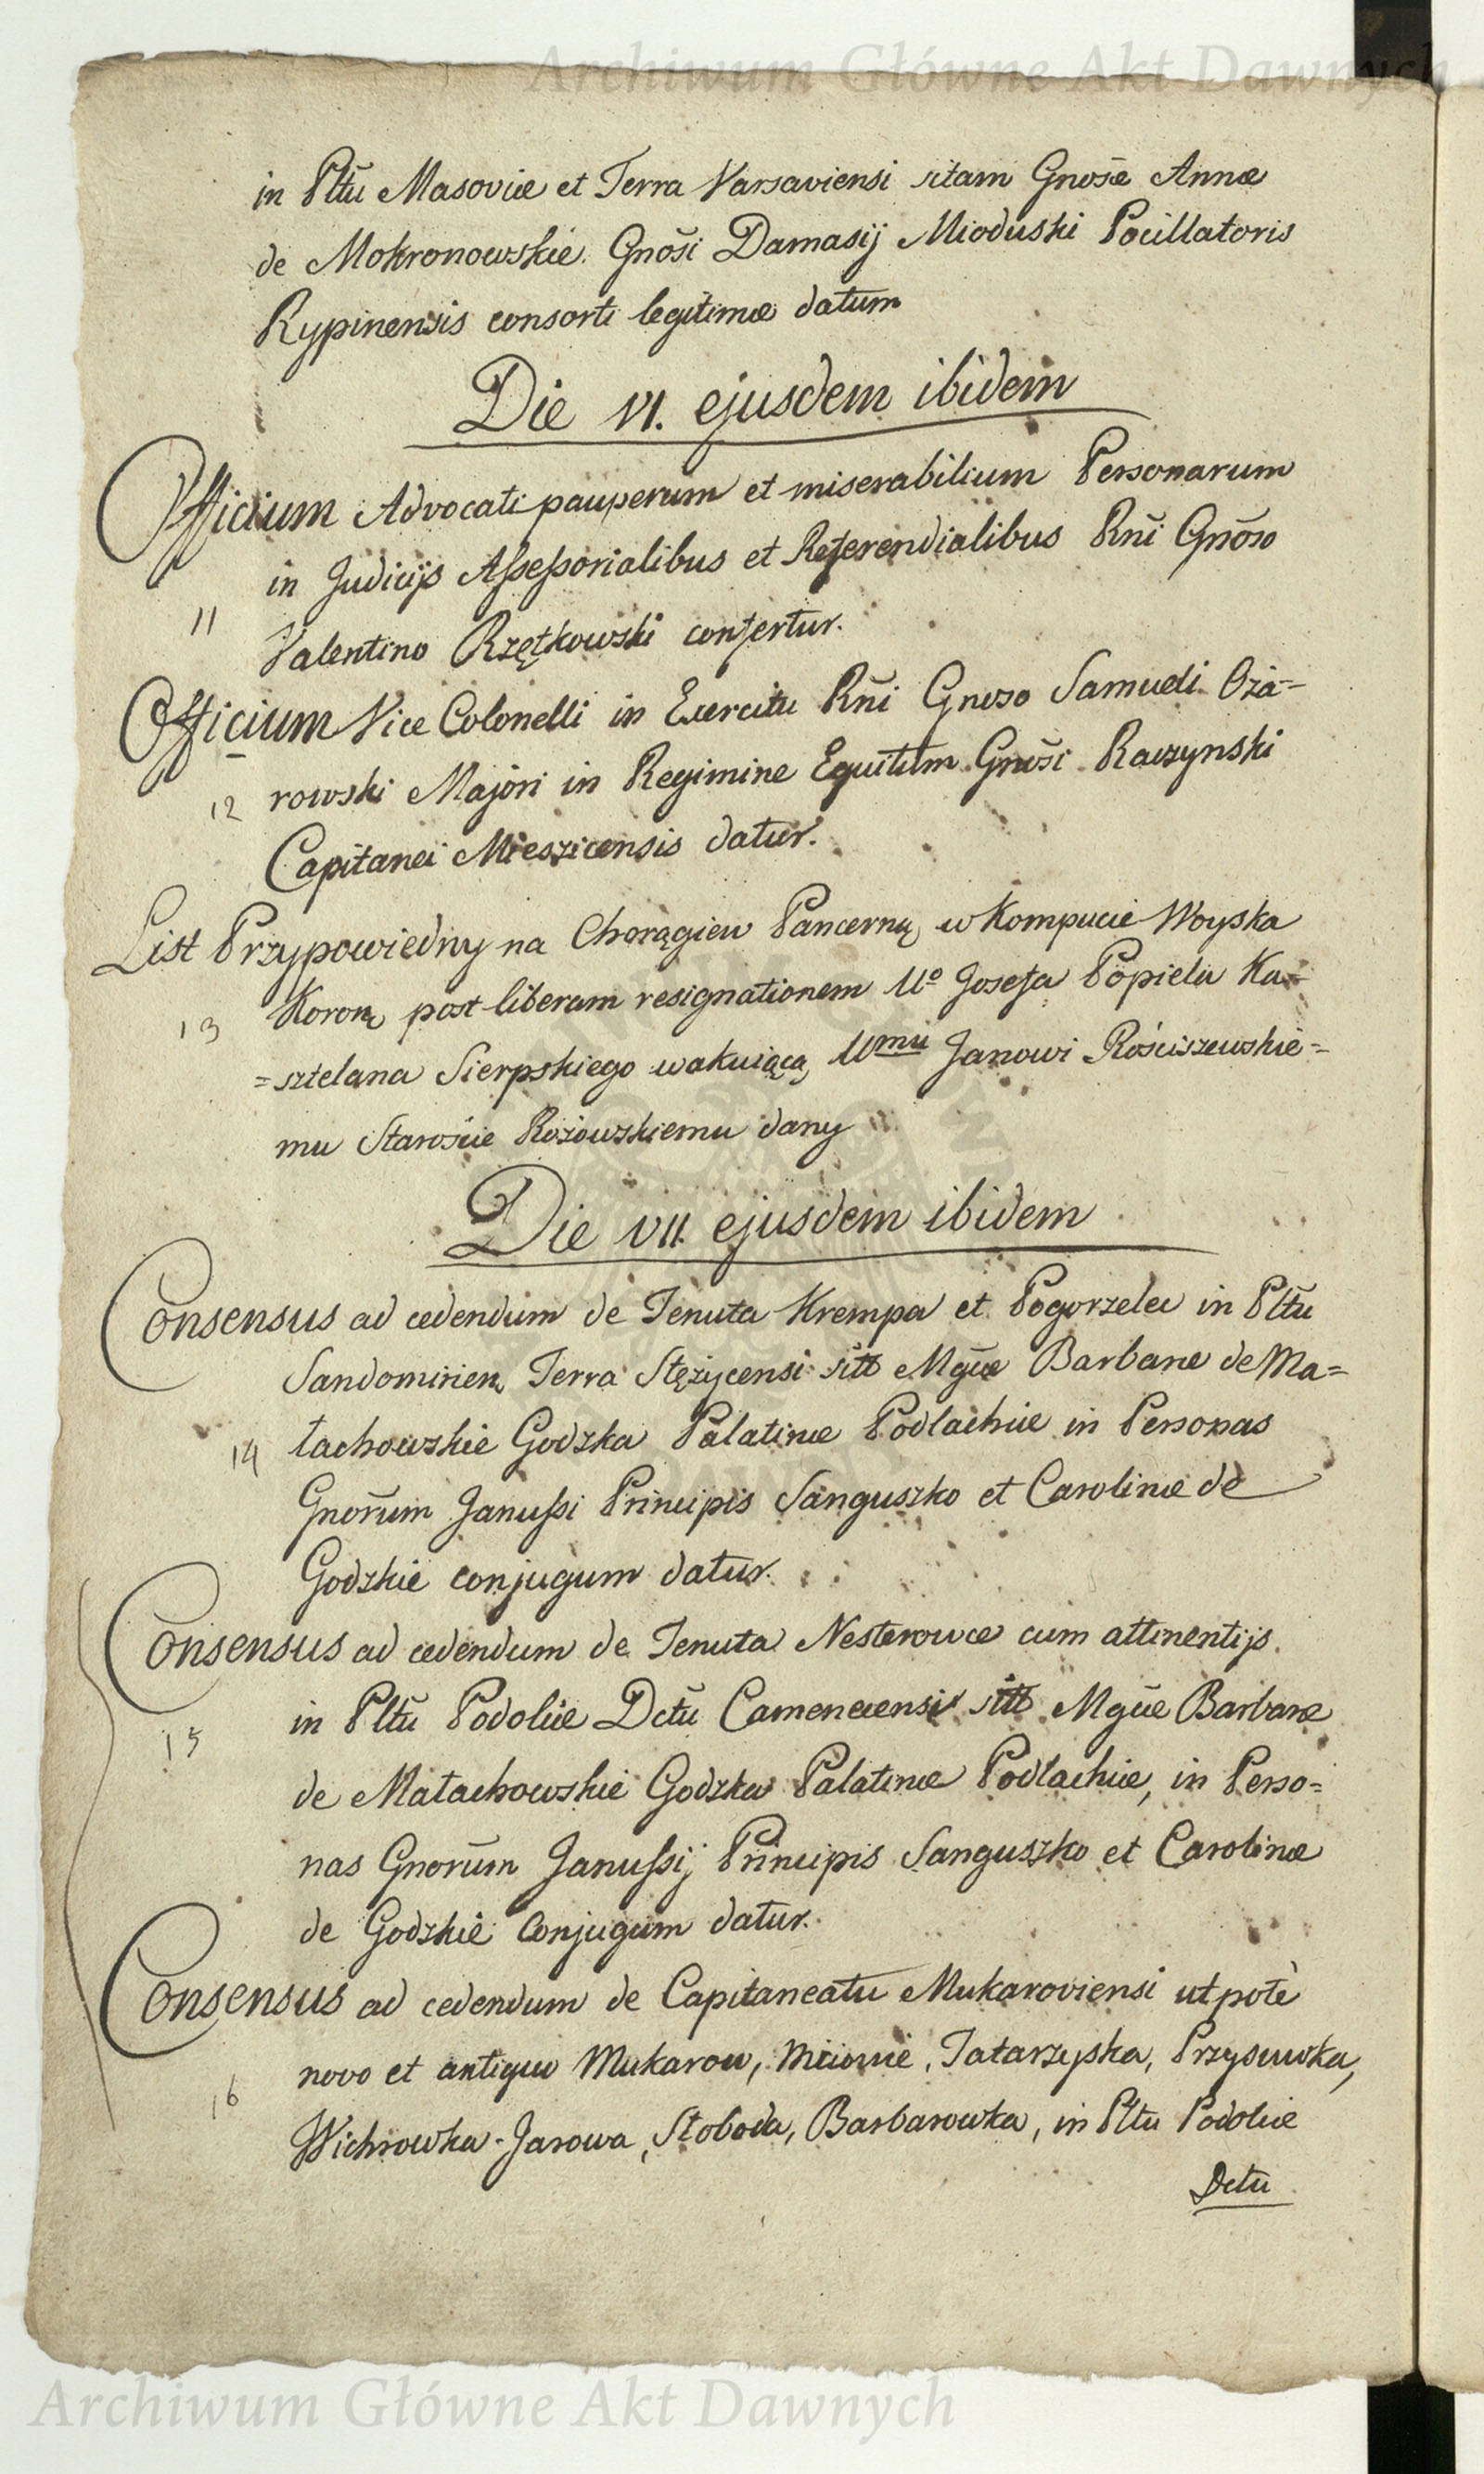 Archiwum Główne Akt Dawnych
in Pltũ Masoviæ et Terra Varsaviensi sitam Gnosæ Annæ
de Mokronowskie Gnõsi Damasij Mioduski Pocillatoris
Rypinensis consorti legitimæ datum
Die VI. ejusdem ibidem
Officium Advocati pauperum et miserabilium Personarum
in Judicijs Assessorialibus et Referendialibus Rni Gnõso
11 Valentino Rzętkowski confertur.
Officium Vice Colonelli in Exercitu Rni Gnoso Samueli Oża=
12 rowski Majori in Regimine Equitum Gnosi Raczynski
Capitanei Mieszicensis datur.
List Przypowiedny na Chorągiew Pancerną w Kompucie Woyska
13 Koronę post liberam resignationem Uº Josefa Popiela Ka=
=sztelana Sierpskiego wakuiącą, Umu Janowi Rościszewskie=
mu Staroście Rożowskiemu dany
Die VII. ejusdem ibidem
Consensus ad cedendum de Tenuta Krempa et Pogorzelec in Pltũ
Sandomirien Terra Stężycensi sitt Mgñæ Barbaræ de Ma=
14 łachowskie Godzka Palatinæ Podlachiæ in Personas
Gnorũm Janussi Principis Sanguszko et Carolinæ de
Godzkie conjugum datur.
Consensus ad cedendum de Tenuta Nesterowce cum attinentijs
in Pltũ Podoliæ Dctũ Camenecensi sitt Mgñæ Barbaræ
15 de Małachowskie Godzka Palatinæ Podlachiæ, in Perso=
nas Gnorũm Janussij Principis Sanguszko et Carolinæ
de Godzkie Conjugum datur.
Consensus ad cedendum de Capitaneatu Mukaroviensi utpotè
novo et antiquo Mukarow, Tatarzyska,
16 Wichrowka Jarowa, Słoboda, Barbarowka, in Pltu Podoliæ
Dctũ
Archiwum Główne Akt Dawnych